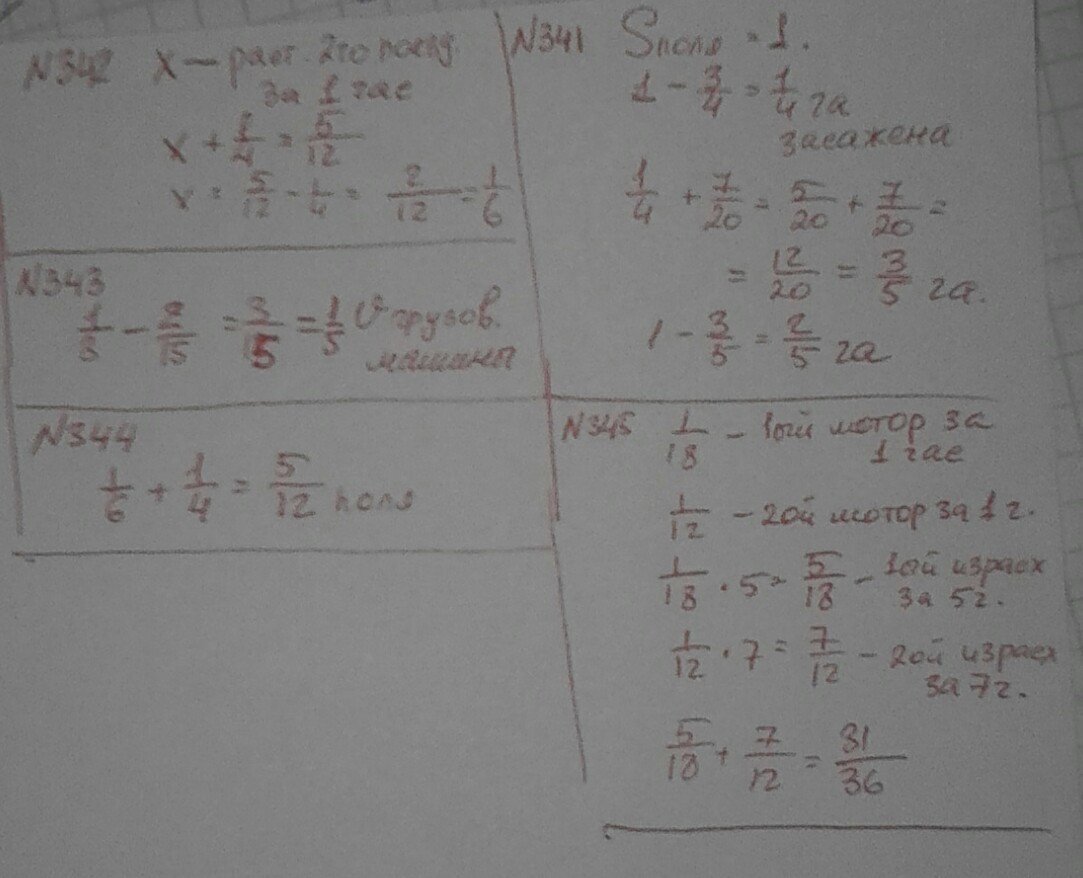 N342 x — раст. 2го поезд.
за 1 час
x + 1/4 = 5/12
x = 5/12 - 1/4 = 2/12 = 1/6
N343
1/3 - 2/15 = 3/15 = 1/5 V грузов.
машины
N344
1/6 + 1/4 = 5/12 поля
N341 Sполя = 1.
1 - 3/4 = 1/4 га
засажена
1/4 + 7/20 = 5/20 + 7/20 =
= 12/20 = 3/5 га.
1 - 3/5 = 2/5 га
N345 1/18 - 1ый мотор за
1 час
1/12 - 2ой мотор за 1 ч.
1/18 · 5 = 5/18 - 1ый израсх
за 5ч.
1/12 · 7 = 7/12 - 2ой израсх
за 7ч.
5/18 + 7/12 = 31/36